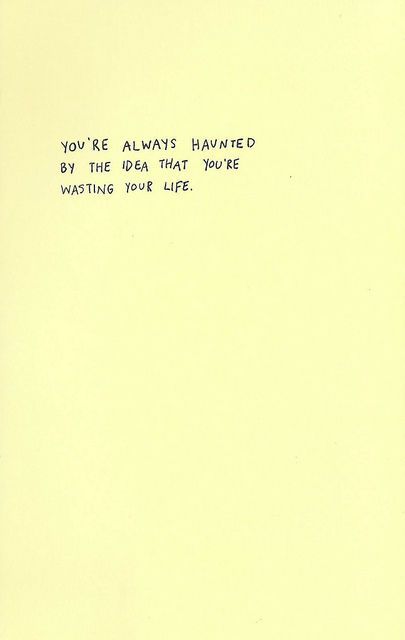 YOU'RE ALWAYS HAUNTED
BY THE IDEA THAT YOU'RE
WASTING YOUR LIFE.